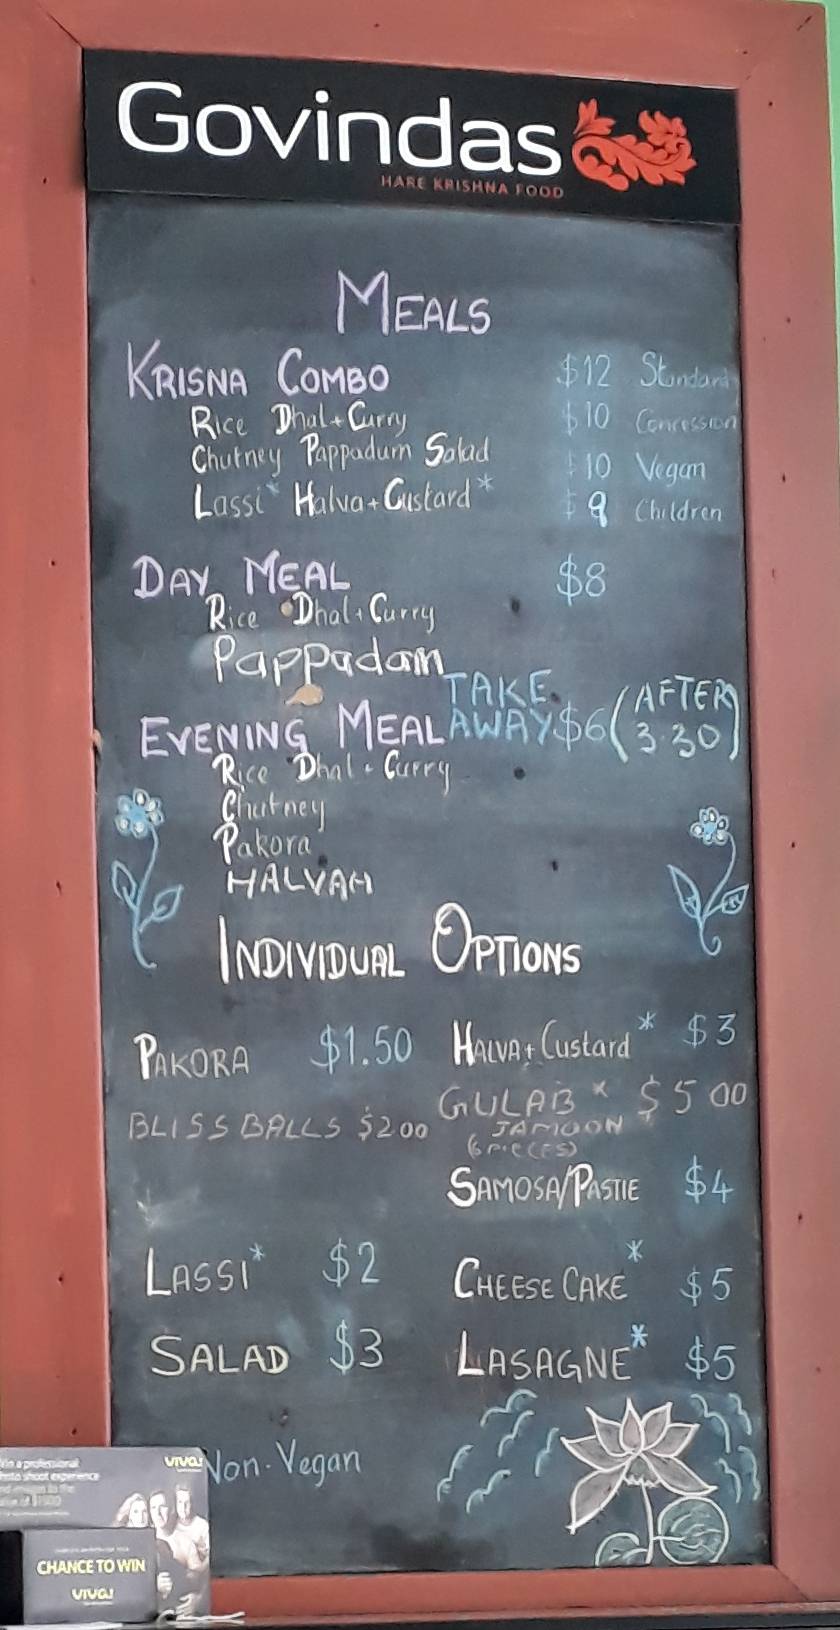 Govindas
HARE KRISHNA FOOD
MEALS
KRISNA COMBO $12 Standard
Rice Dhal + Curry $10 Concession
Chutney Pappadum Salad $10 Vegan
Lassi* Halva + Custard* $9 Children
DAY MEAL $8
Rice Dhal + Curry
Pappadam
EVENING MEAL TAKE AWAY $6 (AFTER 3.30)
Rice Dhal + Curry
Chutney
Pakora
HALVAH
INDIVIDUAL OPTIONS
PAKORA $1.50
HALVA + Custard* $3
BLISS BALLS $2 00
GULAB * $5 00
JAMOON
6 PIECES)
SAMOSA/PASTIE $4
LASSI* $2
CHEESE CAKE* $5
SALAD $3
LASAGNE* $5
Non-Vegan
Win a professional
photo shoot experience
and images to the
value of $1500
VIVA!
CHANCE TO WIN
VIVA!